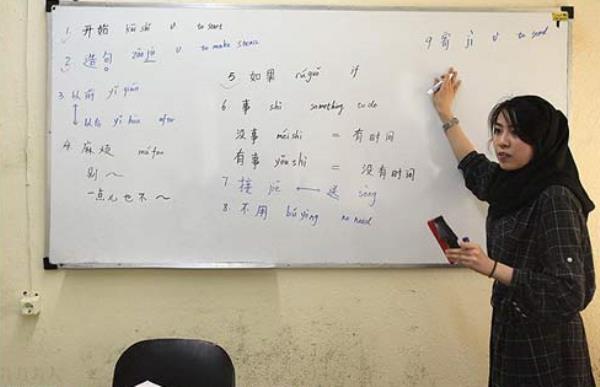 1. 开始 kāi shǐ v to start
2. 造句 zào jù v to make
3 以前 yǐ qián
以后 yǐ hòu after
4. 麻烦 má fan
别~
一点儿也不~
5 如果 rú guǒ if
6. 事 shì something to do
没事 méi shì = 有时间
有事 yǒu shì = 没有时间
7. 接 jiē ⟷ 送 sòng
8. 不用 bú yòng no need
9 寄 jì v to send